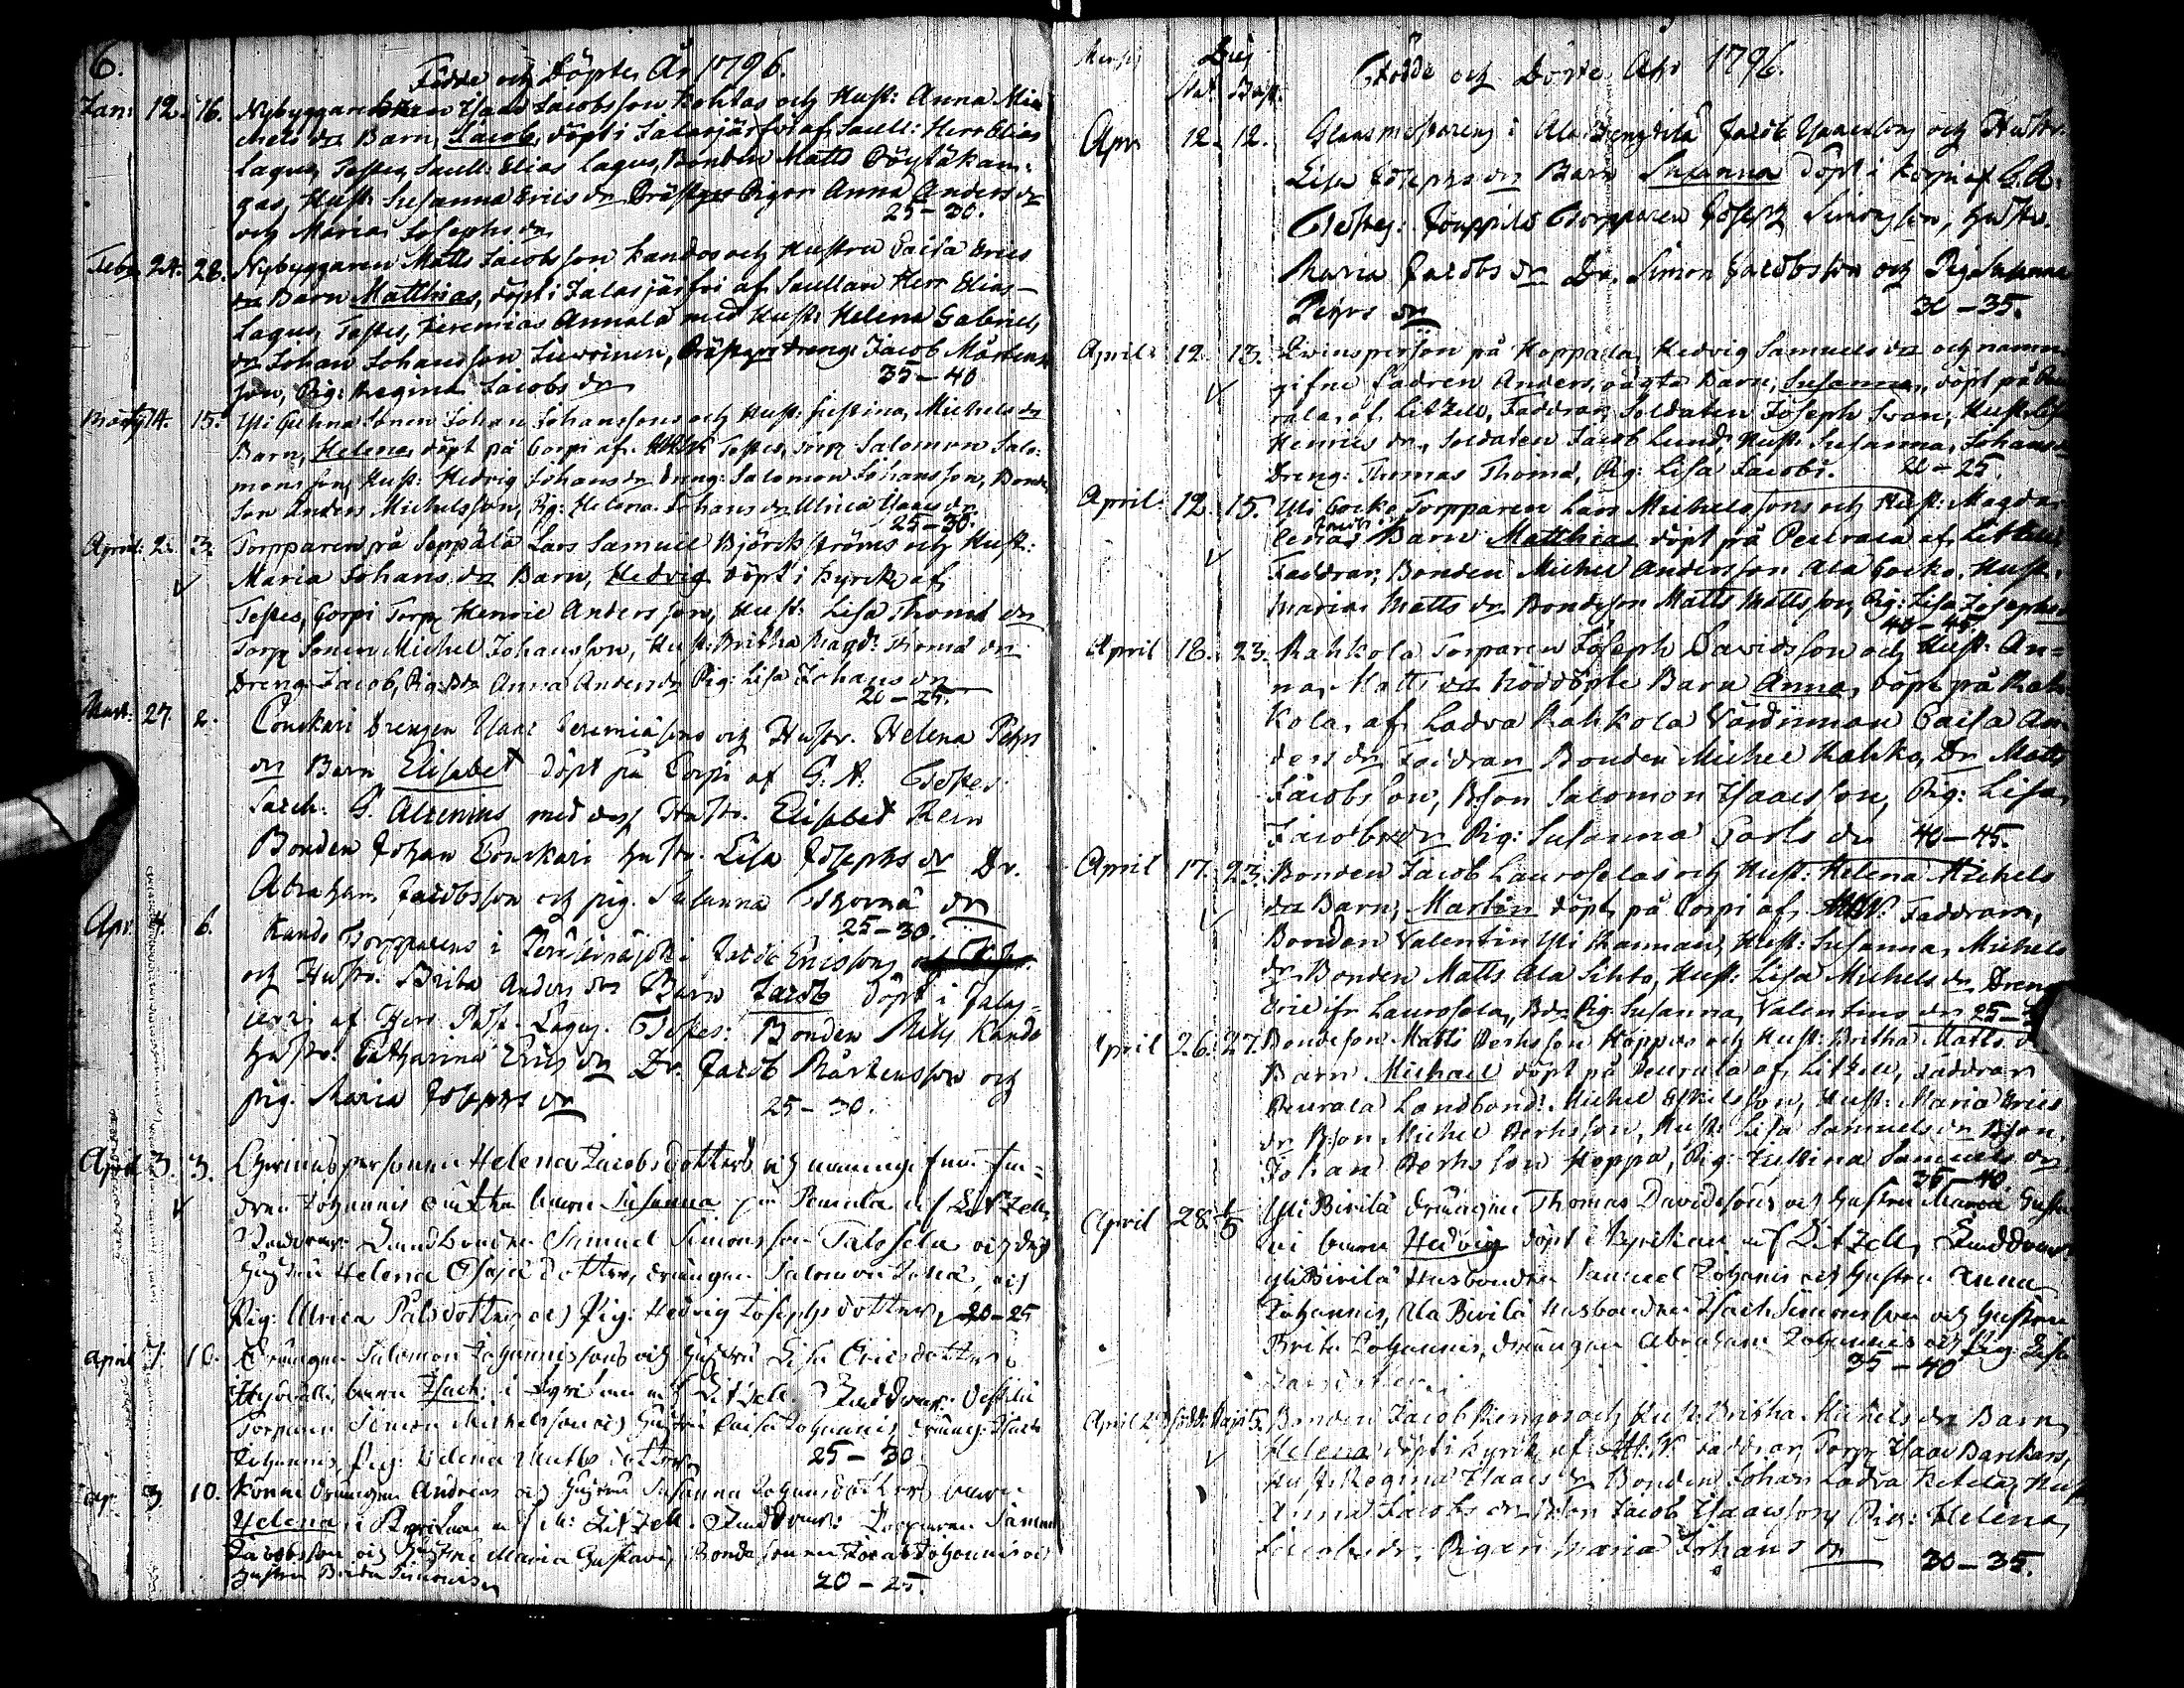 6.
Födde och Döpte År 1796.
Jan: 12. 16. Nybyggaren Isaac Jacobsson Kohtas och Hust: Anna Mic
chels dr Barn, Jacob, döpt i Jalasjärfvi af Sacell: Herr Elias
Lagus, Testes, Sacell: Elias Lagus, Bonden Matts
gas, Hust: Susanna Erics dr Pigor Anna Anders dr
och Maria Josephs dr 25-30.
Febr. 24. 28. Nybyggaren Matts Jacobsson Kandos och Hustru Caisa Erics
dr Barn Matthias, döpt i Jalasjärfvi af Sacellan Herr Elias
Lagus, Testes, Jeremias Annala med Hust: Helena Gabriels
dr Johan Johansson Luoinen, dreng: Jacob Mårtens
son, Pig: Regina Jacobs dr 35-40
Martij 14. 15. Yli sonen Johan Johanssons och Hust: Justina, Michels dr
Barn, Helena, döpt på Corpi af Testes, torp: Salomon Salo:
monsson, Hust: Hedvig Johans dr Dreng: Salomon Johansson, Bonde
son Anders Michelsson, Pig: Helena Johans dr Ulrica Isaacs dr
25-30.
April: 2. 3. Torpparen på Seppälä Lars Samuel Björkströms och Hust:
Maria Johans dr Barn, Hedvig döpt i Kyrck: af
Testes, Corpi Torp: Henric Andersson, Hust: Lisa Thomæ dr
Torp: Sonen Michel Johansson, Hust: Britha Magd: Thomæ dr
Dreng: Jacob, Pig: Anna Anders dr Pig: Lisa Johans dr
20-25.
Mart: 27. 2. Conckari Drengen Isaac Jeremiæsons och Hustr. Helena Pehrs
dr Barn Elisabet döpt på Corpi af G. A. Testes:
Sacell: G. Alcenius med dess Hustr. Elisabet Rein
Bonden Johan Conckari hustr. Lisa Josephs dr Dr.
Abraham Jacobsson och pig. Susanna Thomæ dr
25-30.
Apr. 4. 6. Kando Torpparens i Jacob Ericssons
och Hustr. Brita Anders dr Barn Jacob döpt i Jalas=
jervi af Herr Past. Lagus. Testes: Bonden Nils Kando
hustr. Catharina Erics dr Dr. Jacob Mårtensson och
pig. Maria Josephs dr 25-30.
April 3. 3. Qvinnspersonen Helena Jacobsdotters och namngifne fa=
dren Johannis oäkta barn Susanna på Peurala af Litzell,
Faddrar: Landbonden Samuel Simonsson Talosela och des
hustru Helena Esajædotter, drängen Salomon och
Pig: Ulrica Pålsdotter, och Pig: Hedvig Josephsdotter, 20-25
April 7. 10. Drängen Salomon Johannissons och hustru Lisa Ericsdotters
barn Isach: i Kyrkan af Litzell. Faddrar:
Torparen Simon Michelsson och hustru Caisa Johannis, dräng: Isach
Johannis, Pig: Helena Mattsdotter 25-30
Ap. 9. 10. drängen Andreas och hustru Susanna Johansdotters barn
Helena, i Kyrkan af A: Litzell. Faddrar: Torparen Samuel
Jacobsson och Hustru Maria Gustavi, Bondesonen Jacob Johannis och
hustru Brita Simonis. 20-25.
Mensis Dies
Nat. Bapt.
Födde och Döpte Åhr 1796.
Apr 12. 12. Glasmästarens i Ala Jacob Isaacssons och Hustr.
Lisa Josephs dr Barn Susanna döpt i Korpi af G. A:
Testes: Jouppila Torpparen Joseph Simonsson, hustr.
Maria Jacobs dr Dr. Simon Jacobsson och Pig. Susanna
Pehrs dr 30-35.
April: 12. 13. Qvinsperson på Hoppala, Hedvig Samuels dr och namn
gifne fadren Anders, oägta Barn, Susanna, döpt på Peu
rala, af Litzell, Faddrar, Soldaten Joseph Svan, Hust: Lisa
Henrics dr, Soldaten Jacob Lund, Hust: Susanna, Johans dr
Dreng: Thomas Thomæ, Pig: Lisa Jacobs. 20-25.
April: 12. 15. Yli Cocko Torpparen Lars Michelssons och Hust: Magda:
lenas Barn Matthias döpt på Peurala af Litzell
Faddrar, Bonden Michel Andersson Ala Cocko, Hust:
Maria Matts dr Bondeson Matts Mattsson, Pig: Lisa Josephs dr
40-45.
April 18. 23. Rahkola Torparen Joseph Davidsson och Hust: An=
na Matts dr Nöddöpte Barn Anna, döpt på Rah
kola, af Ladva Rahkola Värdinnan Caisa An
ders dr Faddrar Bonden Michel Rahko, Dr Matts
Jacobsson, Bson Salomon Isaacsson, Pig: Lisa
Jacobs dr Pig: Susanna Carls dr 40-45.
April 17. 23. Bonden Jacob Laurosélas och Hust: Helena Michels
dr Barn, Martin döpt på Corpi af Faddrar,
Bonden Valentin Yli Kannas, Hust: Susanna, Michels
dr Bonden Matts Ala Sihto, Hust: Lisa Michels dr Dreng
Eric ifr Laurosela, Bdr Pig Susanna, Valentins dr 25-
April 26. 27. Bondeson Matts Perhsson Hoppus och Hust: Britha Matts dr
Barn Michael döpt på Peurala af Litzell, Faddrar
Peurala Landbond: Michel Eskilsson, Hust: Maria Erics
dr Bson Michel Perhsson, Hust: Lisa Samuels dr Bson
Johan Perhsson Hoppa, Pig: Justina Samuels dr
35-40
April 28. 1/5 Yli Bivilä drängen Thomas Davidssons och hustru Maria Gusta
vi barn Hedvig döpt i Kyrckan af Litzell, Faddrar:
yli Bivilä Husbonden Samuel Johannis och hustru Anna
Johannis, Ala Bivilä Husbonden Isach Simonsson och hustru
Brita Johannis, drängen Abraham Johannis och Pig: Lisa
Larsdotter. 35-40
April 29 född: Maji 5. Bonden Jacob Rengos och Hust: Britha Michels dr Barn
Helena döpt i Kyrck: af Faddrar, Torp: Isaac Barckars,
Hust: Regina Isaacs dr Bonden Johan Ladva Ketela, Hust
Anna Jacobs dr Bson Jacob Isaacsson, Pig: Helena,
Jacobs dr, Pigan Maria Johans dr 30-35.